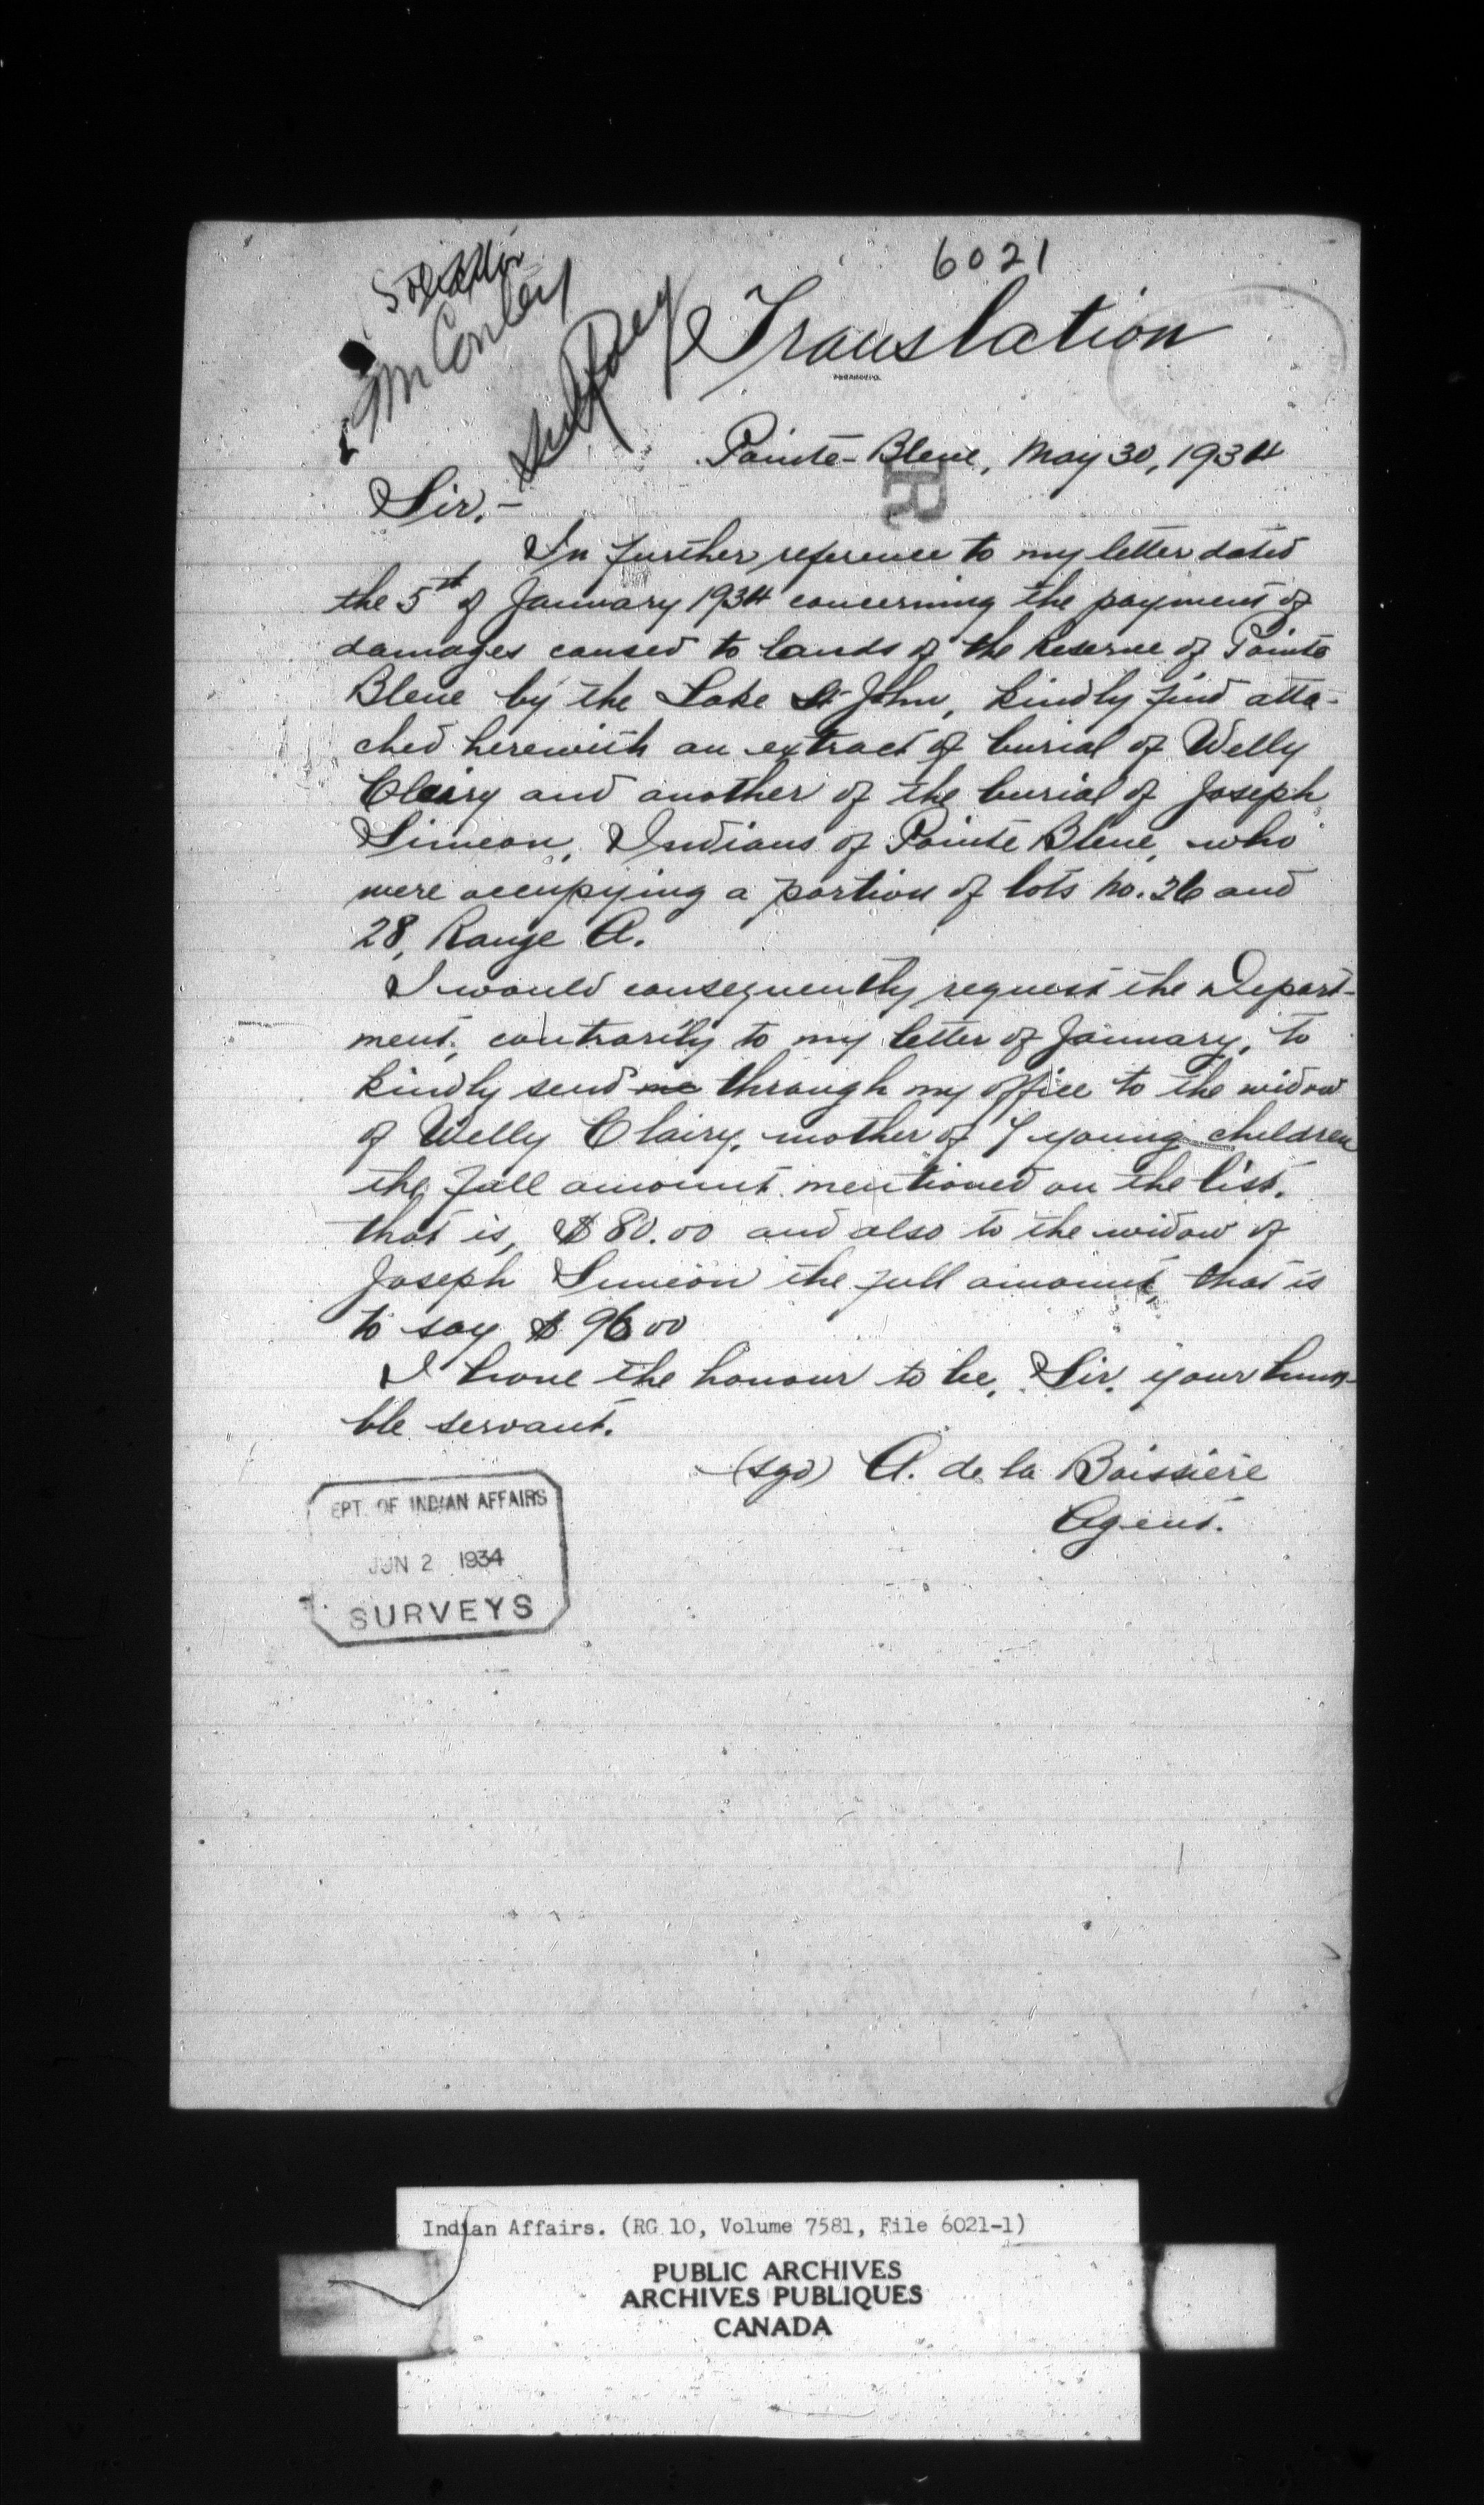 6021
Solicitor
Mr Conley
Translation
Pointe-Bleue, May 30, 1934
R
Sir,-
In further reference to my letter dated
the 5th of January 1934 concerning the payment of
damages caused to lands of the Reserve of Pointe
Bleue by the Lake St John, kindly find atta-
ched herewith an extract of burial of Welly
Cleary and another of the burial of Joseph
Simeon, Indians of Pointe Bleue, who
were occupying a portion of lots no. 26 and
28, Range A.
I would consequently request the Depart-
ment, contrarily to my letter of January, to
kindly send me through my office to the widow
of Welly Clairy, mother of 7 young children
the full amount mentioned on the list,
that is, $80.00 and also to the widow of
Joseph Simeon the full amount, that is
to say $ 96 00
I have the honour to be, Sir, your hum-
ble servant.
(sgd) A. de la Boissière
Agent.
EPT. OF INDIAN AFFAIRS
JUN 2 1934
SURVEYS
Indian Affairs. (RG 10, Volume 7581, File 6021-1)
PUBLIC ARCHIVES
ARCHIVES PUBLIQUES
CANADA